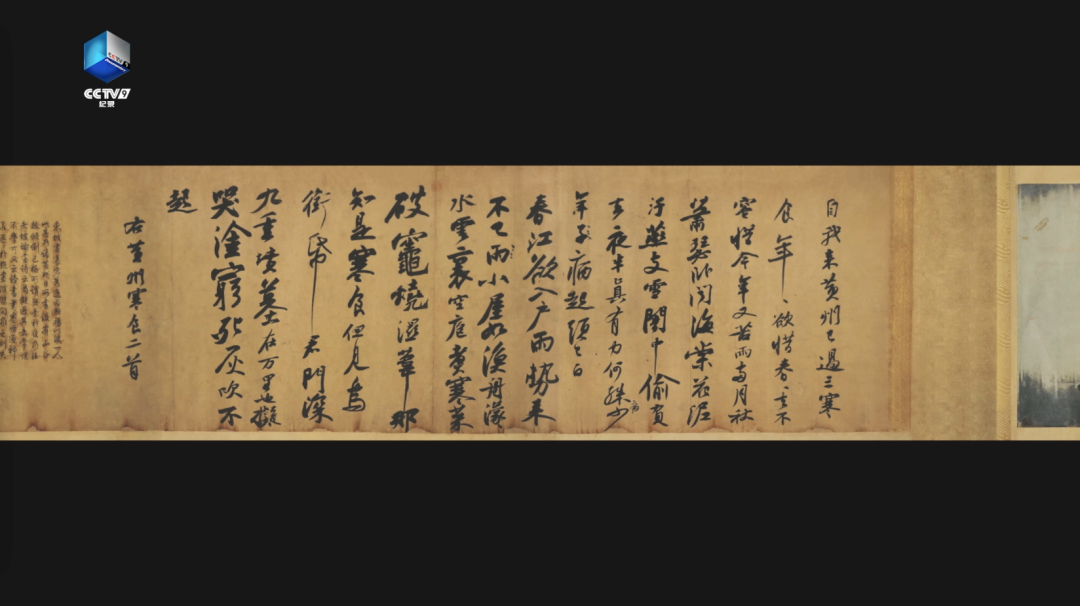 CCTV9
纪录
自我来黄州已過三寒
食年〻欲惜春〻去不
容惜今年又苦雨兩月秋
蕭瑟卧聞海棠花泥
汙燕支雪闇中偷負
去夜半真有力何殊少
年子病起頭已白
春江欲入户雨勢来
不已雨小屋如漁舟濛〻
水雲裏空庖煮寒菜
破竈燒濕葦那
知是寒食但見烏
銜帋君門深
九重墳墓在万里也擬
哭塗窮死灰吹不
起
右黄州寒食二首